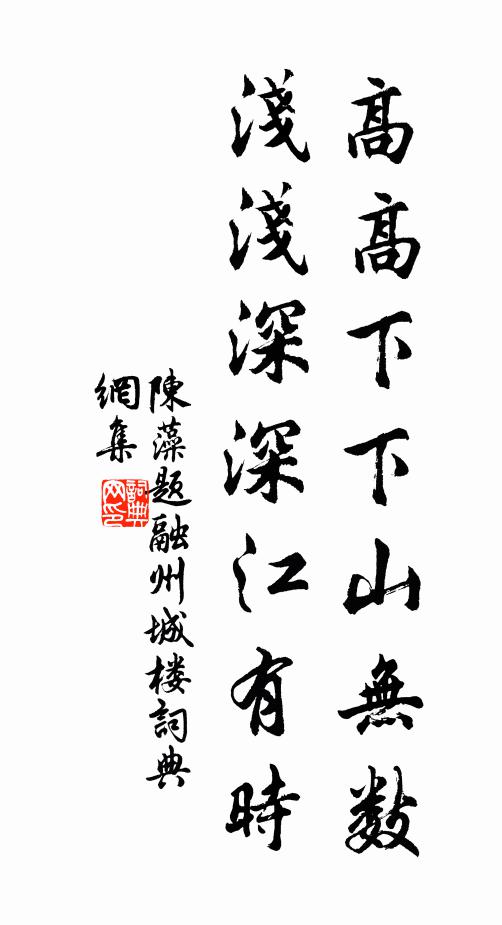 高高下下山無数
淺淺深深江有時
陳藻題融州城楼詞典
網集
詞典
网印